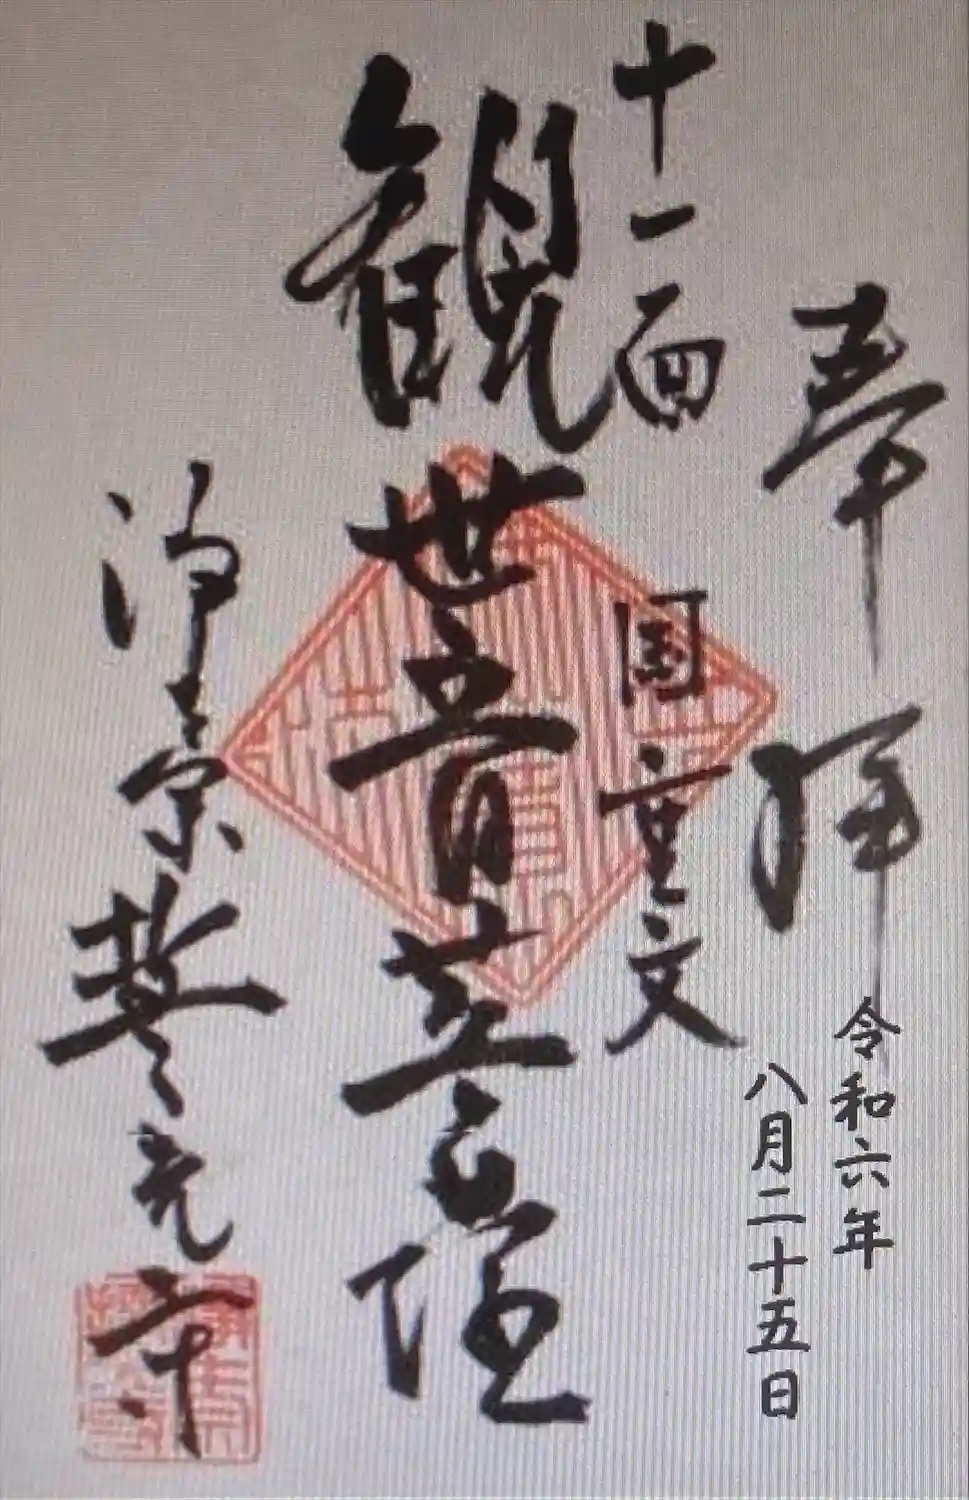 奉拝
令和六年
八月二十五日
十一面
国重文
観世音菩薩
浄土宗誓光寺